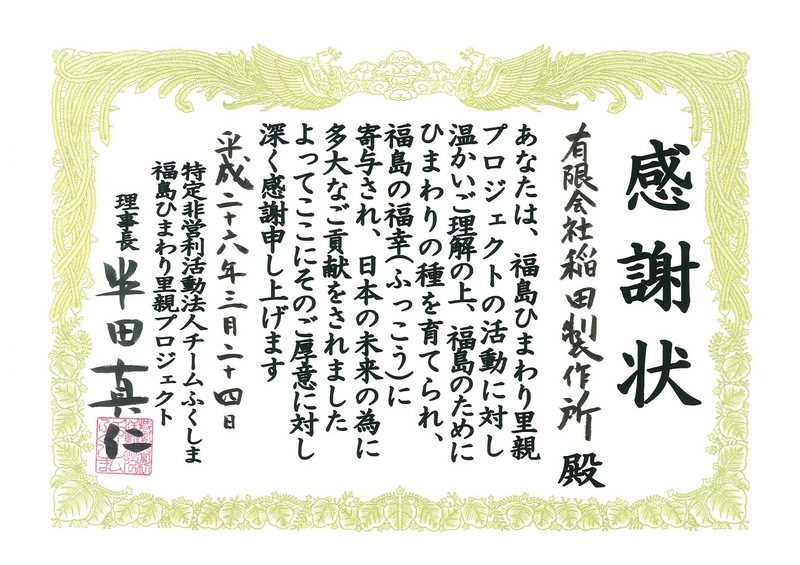 感謝状
有限会社稲田製作所 殿
あなたは、福島ひまわり里親
プロジェクトの活動に対し
温かいご理解の上、福島のために
ひまわりの種を育てられ、
福島の福幸(ふっこう)に
寄与され、日本の未来の為に
多大なご貢献をされました
よってここにそのご厚意に対し
深く感謝申し上げます
平成二十六年三月二十四日
特定非営利活動法人チームふくしま
福島ひまわり里親プロジェクト
理事長 半田真仁